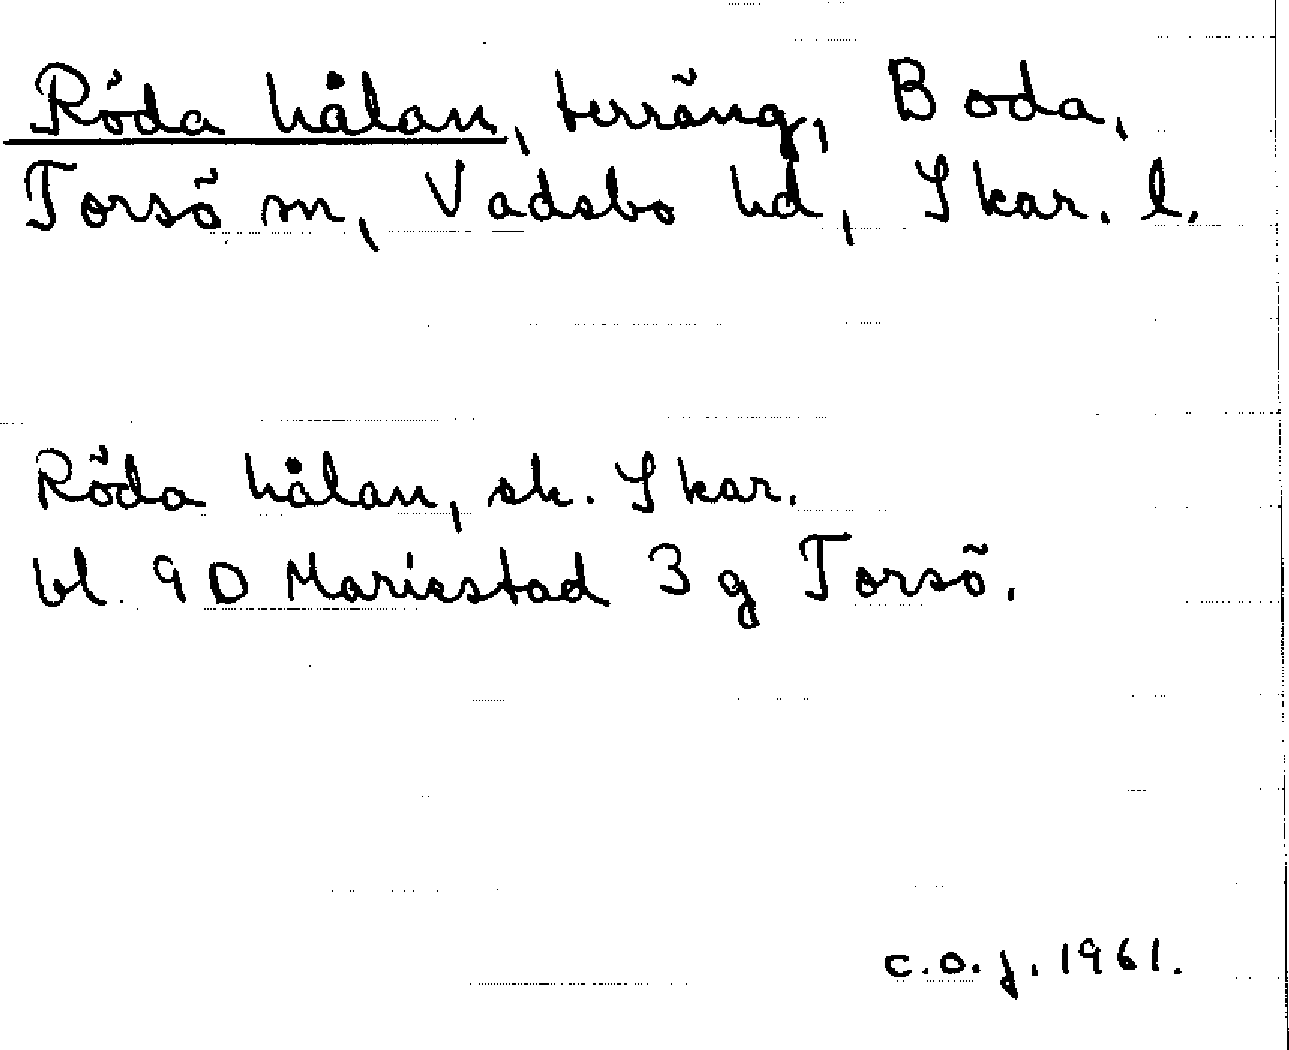 Röda hålan, terräng, Boda,
Torsö sn, Vadsbo hd, Skar. l.
Röda hålan, ek. Skar.
bl. 9D Mariestad 3 g Torsö.
C.O.J. 1961.